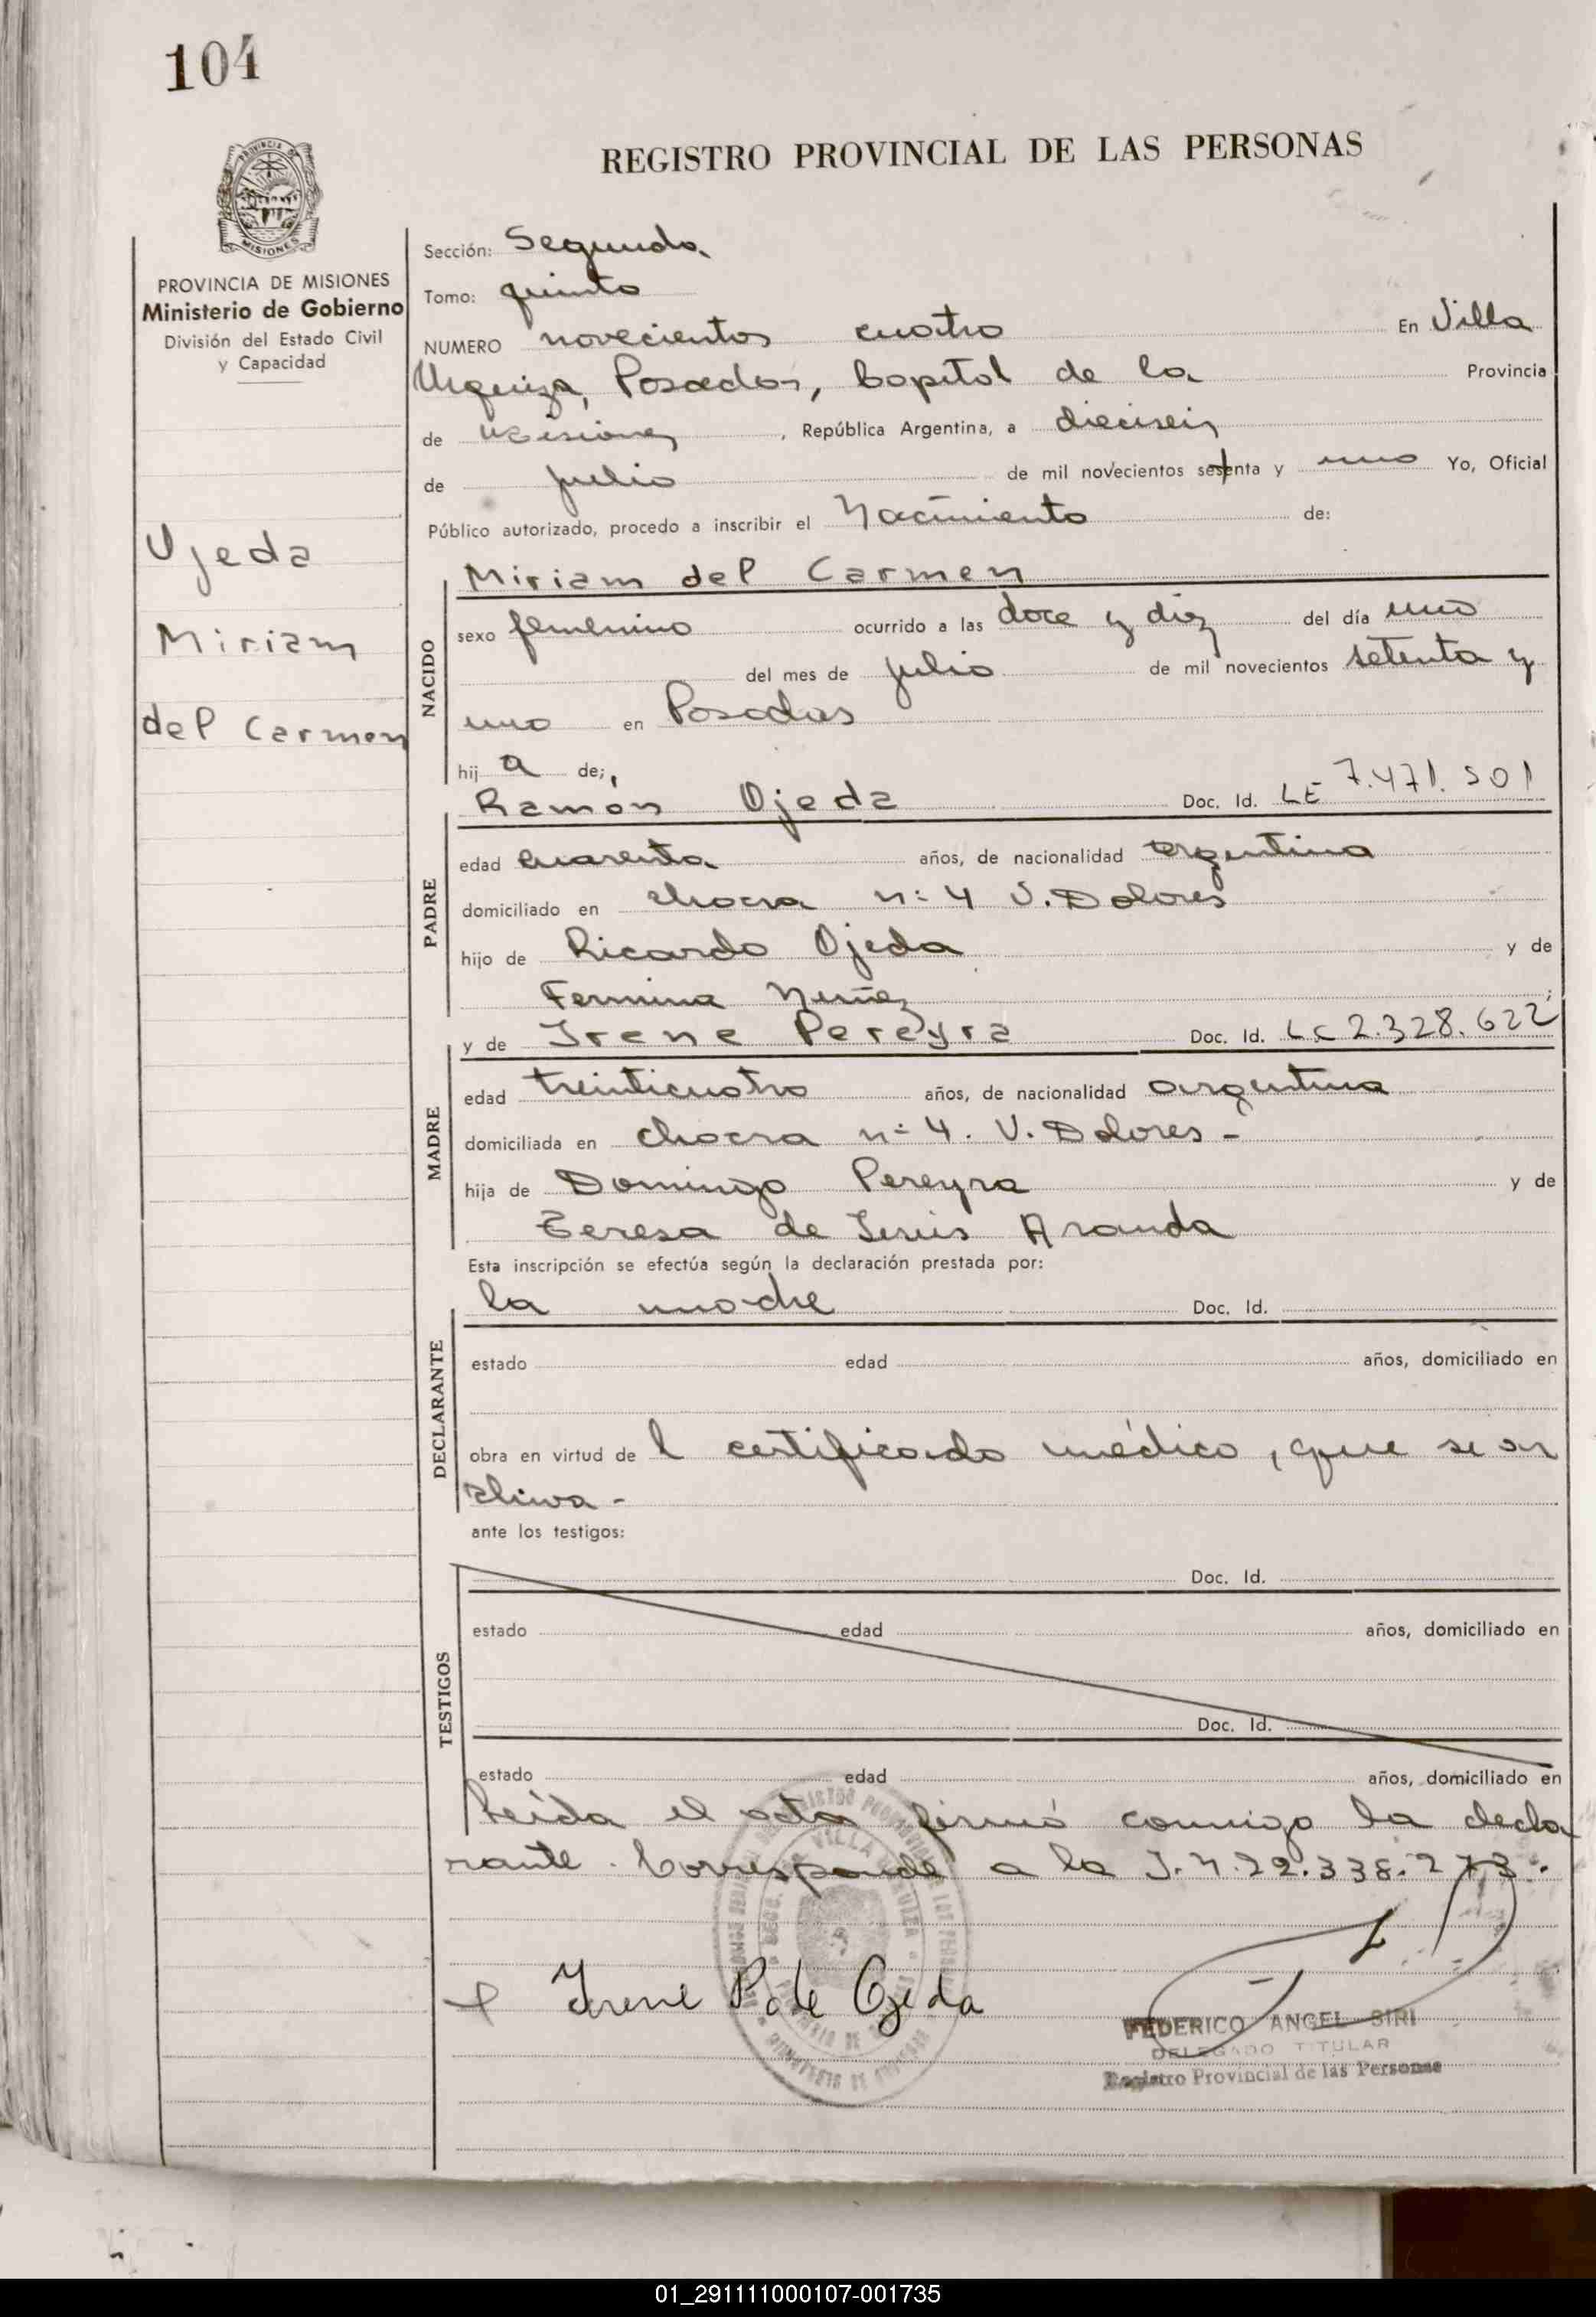 104
REGISTRO PROVINCIAL DE LAS PERSONAS
MISIONES
PROVINCIA DE MISIONES
Ministerio de Gobierno
División del Estado Civil
y Capacidad
Ojeda
Miriam
del Carmen
Sección: Segunda
Tomo: quinto
NUMERO novecientos cuatro En Villa
Urquiza, Posadas, Capital de la Provincia
de Misiones, República Argentina, a dieciseis
de julio de mil novecientos setenta y uno Yo, Oficial
Público autorizado, procedo a inscribir el Nacimiento de:
Miriam del Carmen
NACIDO
sexo femenino ocurrido a las doce y diez del día uno
del mes de julio de mil novecientos setenta y
uno en Posadas
hij a de;
Ramón Ojeda Doc. Id. LE 7.471.501
PADRE
edad cuarenta años, de nacionalidad argentina
domiciliado en chacra n: 4 V. Dolores
hijo de Ricardo Ojeda y de
Fermina Nuñez
y de Irene Pereyra Doc. Id. LC 2.328.622
MADRE
edad treinticuatro años, de nacionalidad argentina
domiciliada en chacra n: 4. V. Dolores -
hija de Domingo Pereyra y de
Teresa de Jesús Aranda
Esta inscripción se efectúa según la declaración prestada por:
la madre Doc. Id.
DECLARANTE
estado edad años, domiciliado en
obra en virtud de l certificado médico, que se ar
chiva -
ante los testigos:
Doc. Id.
TESTIGOS
estado edad años, domiciliado en
Doc. Id.
estado edad años, domiciliado en
Leída el acta firmó conmigo la decla
rante. Corresponde a la I.N. 22.338.273.
Irene P de Ojeda
FEDERICO ANGEL SIRI
DELEGADO TITULAR
Registro Provincial de las Personas
01_291111000107-001735